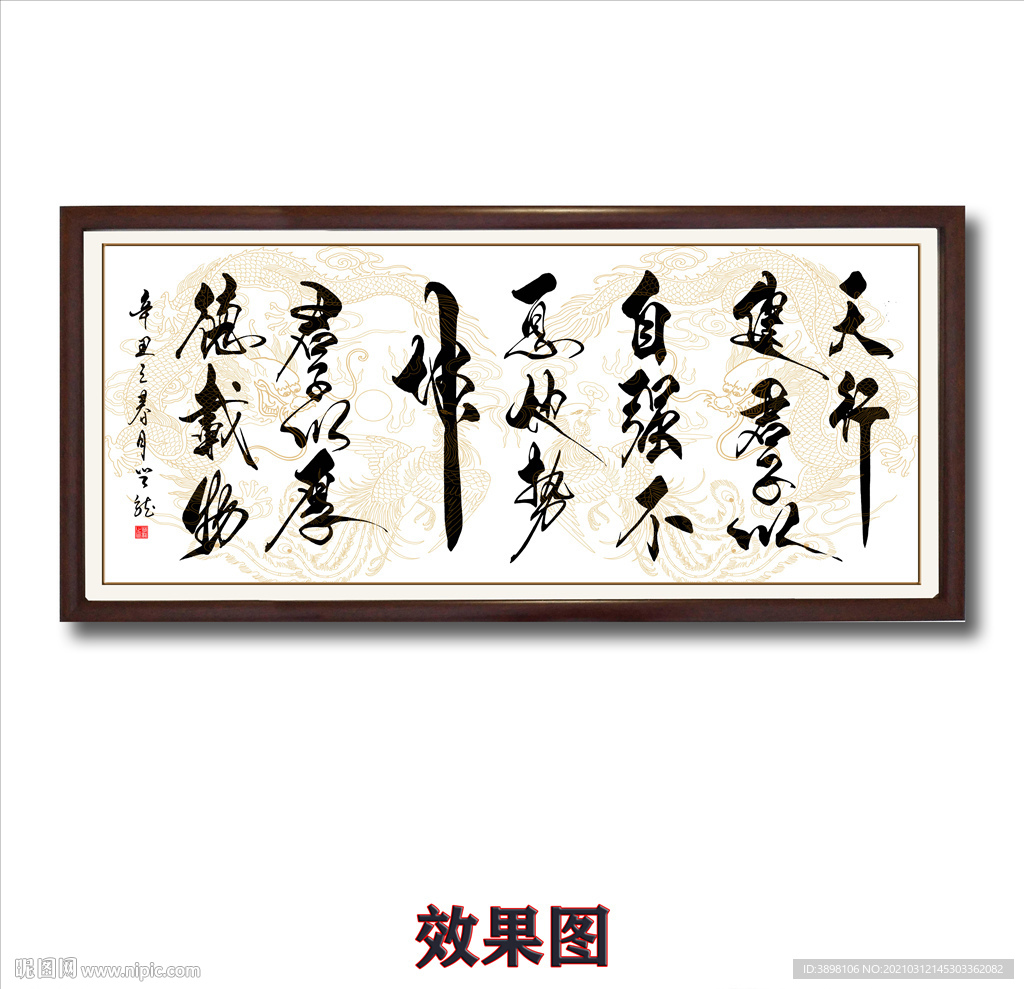 天行
健君子以
自强不
息地势
坤
君子以厚
德載物
辛丑之春月
效果图
昵图网 www.nipic.com
ID:3898106 NO:20210312145303362082